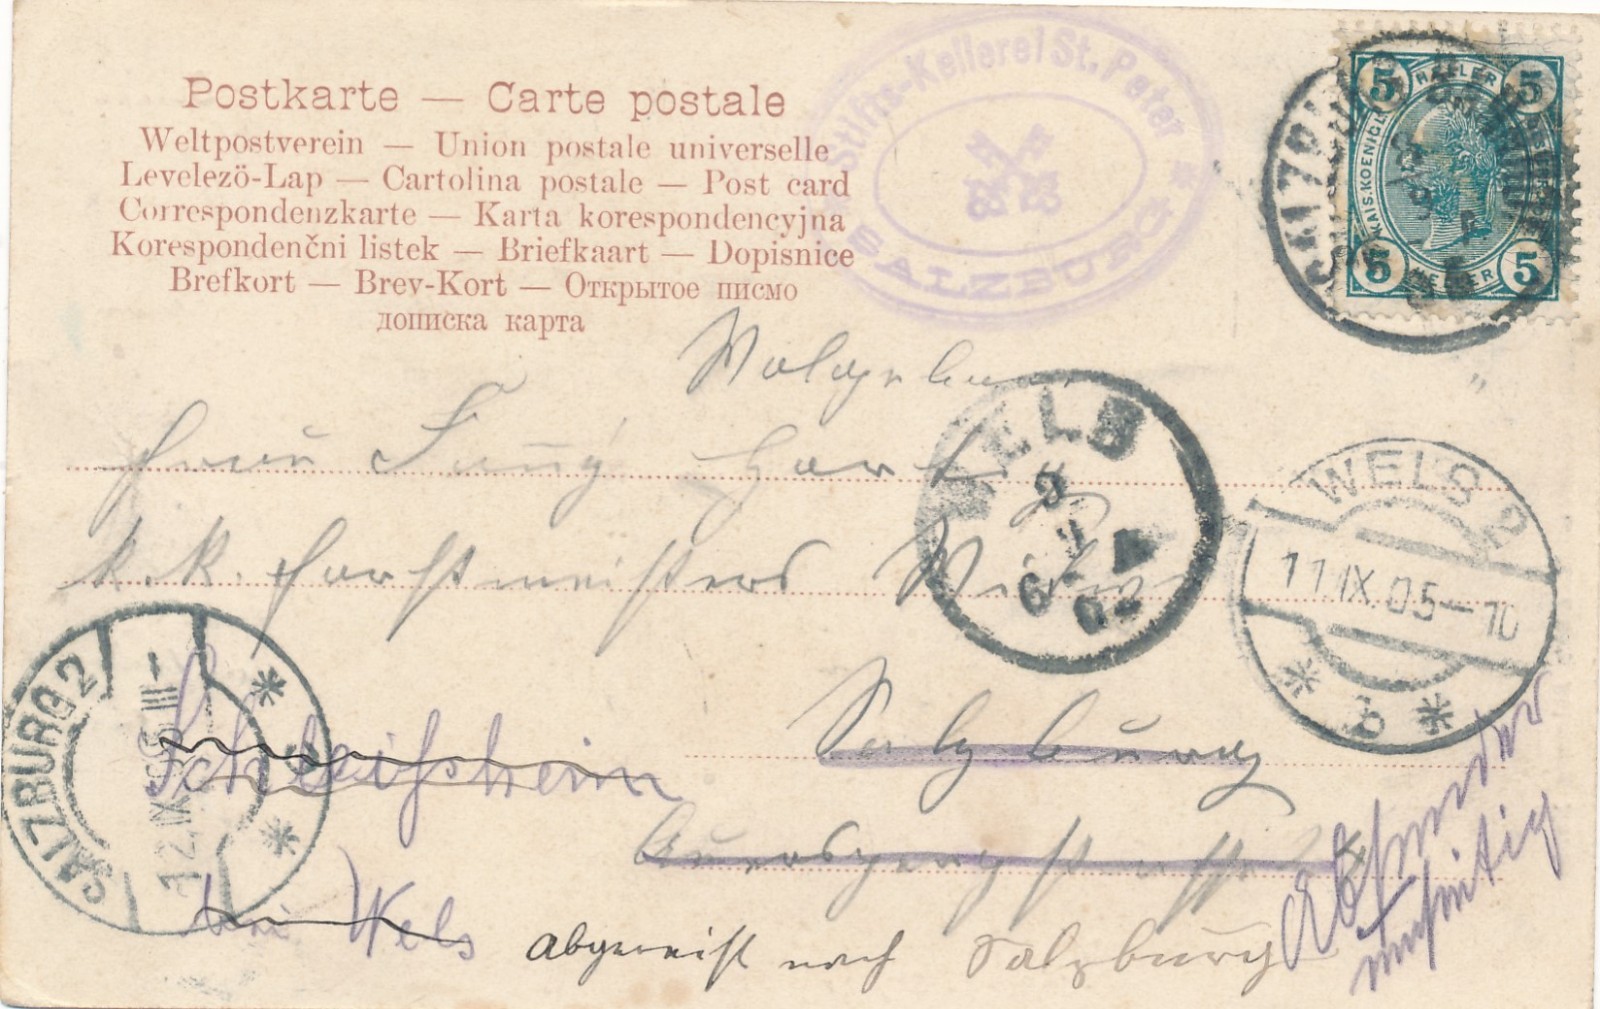 Postkarte — Carte postale
Weltpostverein — Union postale universelle
Levelezö-Lap — Cartolina postale — Post card
Correspondenzkarte — Karta korespondencyjna
Korespondenčni listek — Briefkaart — Dopisnice
Brefkort — Brev-Kort — Открытое писмо
дописка карта
Stifts-Kellerei St. Peter
SALZBURG
5 HELLER 5
KAIS. KOENIGL.
5 HELLER 5
Frau Fany
k. k. Forstmeisters
WELS
WELS 2
11.IX.05—10
Salzburg
SALZBURG 2
12.IX.05
Schleißheim
bei Wels
abgereist nach Salzburg